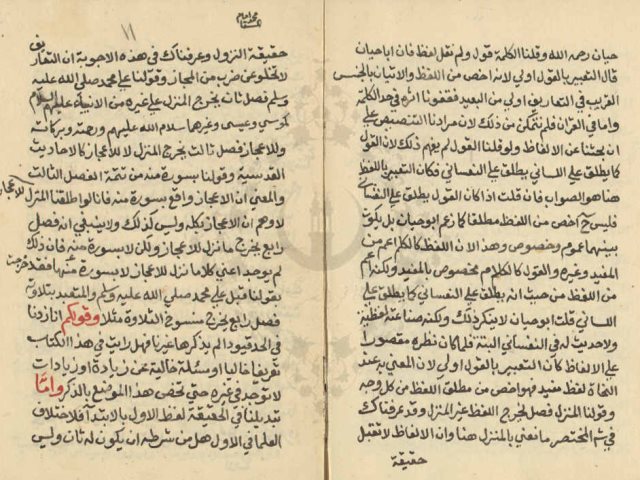 حيان رحمه الله وقلنا الكلمة قول ولم نقل لفظ فان ابا حيان
قال التعبير بالقول اولى لانه اخص من اللفظ والاتيان بالجنس
القريب في التعاريف اولى من البعيد فقفونا اثره في حد الكلمة
واما في القرآن فلم نتمكن من ذلك لان مرادنا التنصيص على
ان بحثنا عن الالفاظ ولو قلنا القول لم يفهم ذلك لان القول
كما يطلق على اللساني يطلق على النفساني فكان التعبير باللفظ
هنا هو الصواب فان قلت اذا كان القول يطلق على النفساني
فليس اخص من اللفظ مطلقا كما زعم ابو حيان بل يكون
بينهما عموم وخصوص وهذا لان اللفظ كالكلام اعم من
المفيد وغيره والقول كالكلام مخصوص بالمفيد ولكنه اعم
من اللفظ من حيث انه يطلق على النفساني كما يطلق على
اللساني قلت ابو حيان لا ينكر ذلك ولكنه صناعته لفظية
ولا حديث له في النفساني البتة فلما كان نظره مقصورا
على الالفاظ كان التعبير بالقول اولى لان المعني به عند
النحاة لفظ مفيد فهو اخص من مطلق اللفظ من كل وجه
وقولنا المنزل فصل يخرج اللفظ غير المنزل وقد عرفناك
في شرح المختصر ما نعني بالمنزل هنا وان الالفاظ لا تقبل
حقيقة
١١
حقيقة النزول وعرفناك في هذه الاجوبة ان التعاريف
لا تخلو عن ضرب من المجاز وقولنا على محمد صلى الله عليه
وسلم فصل ثان يخرج المنزل على غيره من الانبياء عليهم السلام
كموسى وعيسى وغيرهما سلام الله عليهم ورحمته وبركاته
وللاعجاز فصل ثالث يخرج المنزل لا للاعجاز كالاحاديث
القدسية وقولنا بسورة منه من تتمة الفصل الثالث
والمعنى ان الاعجاز واقع بسورة منه فانا لو اطلقنا المنزل للاعجاز
لاوهم ان الاعجاز بكله وليس كذلك ولا ينبغي انه فصل
رابع يخرج ما نزل للاعجاز ولكن لا بسورة منه فان ذلك
لم يوجد اعني كلاما نزل للاعجاز لا بسورة منه فقد خرجت
بقولنا قبل على محمد صلى الله عليه وسلم والمتعبد بتلاوته
فصل رابع يخرج منسوخ التلاوة مثلا وقولكم انا زدنا
في الحد قيودا لم يذكرها غيرنا فهل رايت في هذا الكتاب
تعريفا خاليا او مسئلة خالية عن زيادة او زيادات
لا توجد في غيره حتى تخص هذا الموضع بالذكر واما
تبديلنا في الحقيقة لفظ الاول بالابتدا فلاختلاف
العلما في الاول هل من شرطه ان يكون له ثان وليس